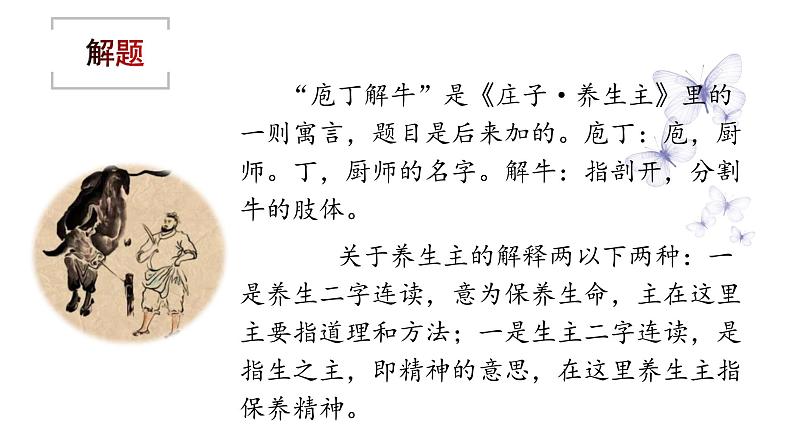 解题
“庖丁解牛”是《庄子·养生主》里的
一则寓言，题目是后来加的。庖丁：庖，厨
师。丁，厨师的名字。解牛：指剖开，分割
牛的肢体。
关于养生主的解释两以下两种：一
是养生二字连读，意为保养生命，主在这里
主要指道理和方法；一是生主二字连读，是
指生之主，即精神的意思，在这里养生主指
保养精神。